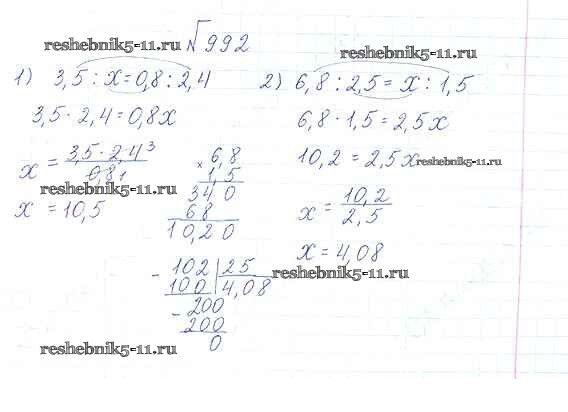 √992
reshebnik5-11.ru
reshebnik5-11.ru
1) 3,5 : x = 0,8 : 2,4
2) 6,8 : 2,5 = x : 1,5
3,5 · 2,4 = 0,8x
6,8 · 1,5 = 2,5x
x = 3,5 · 2,4 3
0,8 1
reshebnik5-11.ru
x = 10,5
× 6,8
1,5
340
68
10,20
10,2 = 2,5x
reshebnik5-11.ru
x = 10,2
2,5
x = 4,08
reshebnik5-11.ru
- 102 | 25
100 | 4,08
- 200
200
0
reshebnik5-11.ru